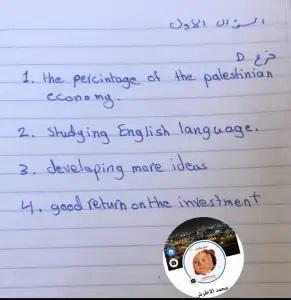 السؤال الاول
فرع D
1. the percintage of the palestinian
economy.
2. studying English language.
3. developing more ideas
4. good return on the investment
محمد الاطرش